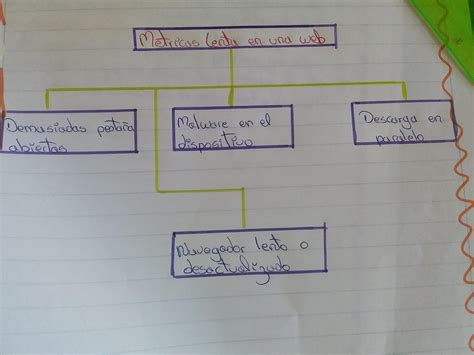 Metricas lenta en una web
Demasiadas pestaña
abiertas
Malware en el
dispositivo
Descarga en
paralelo
Navegador lento o
desactualizado